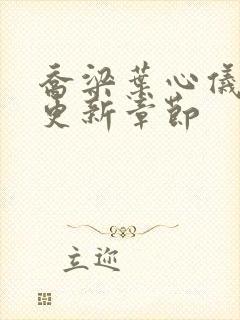 乔梁葉心儀
更新章節
立迩